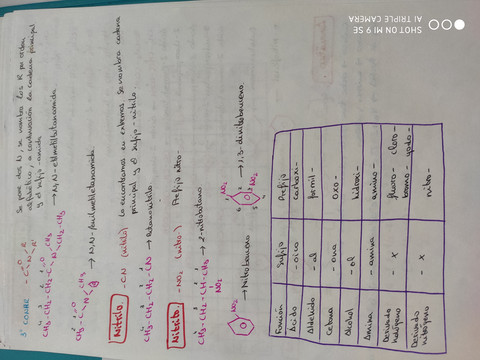 3º CONRR'
Se parte del N, se nombra los R por orden
alfabético, a continuación la cadena principal
y el sufijo -amida
CH₃-CH₂-CH₂-C
→ N,N-etilmetilbutanamida
CH₃-C
→ N,N-fenilmetiletanamida
Nitrilo
-CN (nitrilo) Lo encontramos en extremos. Se nombra cadena
principal y el sufijo -nitrilo.
CH₃-CH₂-CH₂-CN → butanonitrilo
Nitrito
-NO₂ (nitro-) Prefijo nitro-
CH₃-CH₂-CH-CH₃ → 2-nitrobutano
NO₂
NO₂
→ Nitrobenceno
NO₂
NO₂
→ 1,3-dinitrobenceno
Función Sufijo Prefijo
Ácido -oico carboxi-
Aldehído -al formil-
Cetona -ona oxo-
Alcohol -ol hidroxi-
Amina -amina amino-
Derivado halógeno x fluoro- cloro- bromo- yodo-
Derivado nitrógeno x nitro-
SHOT ON MI 9 SE
AI TRIPLE CAMERA